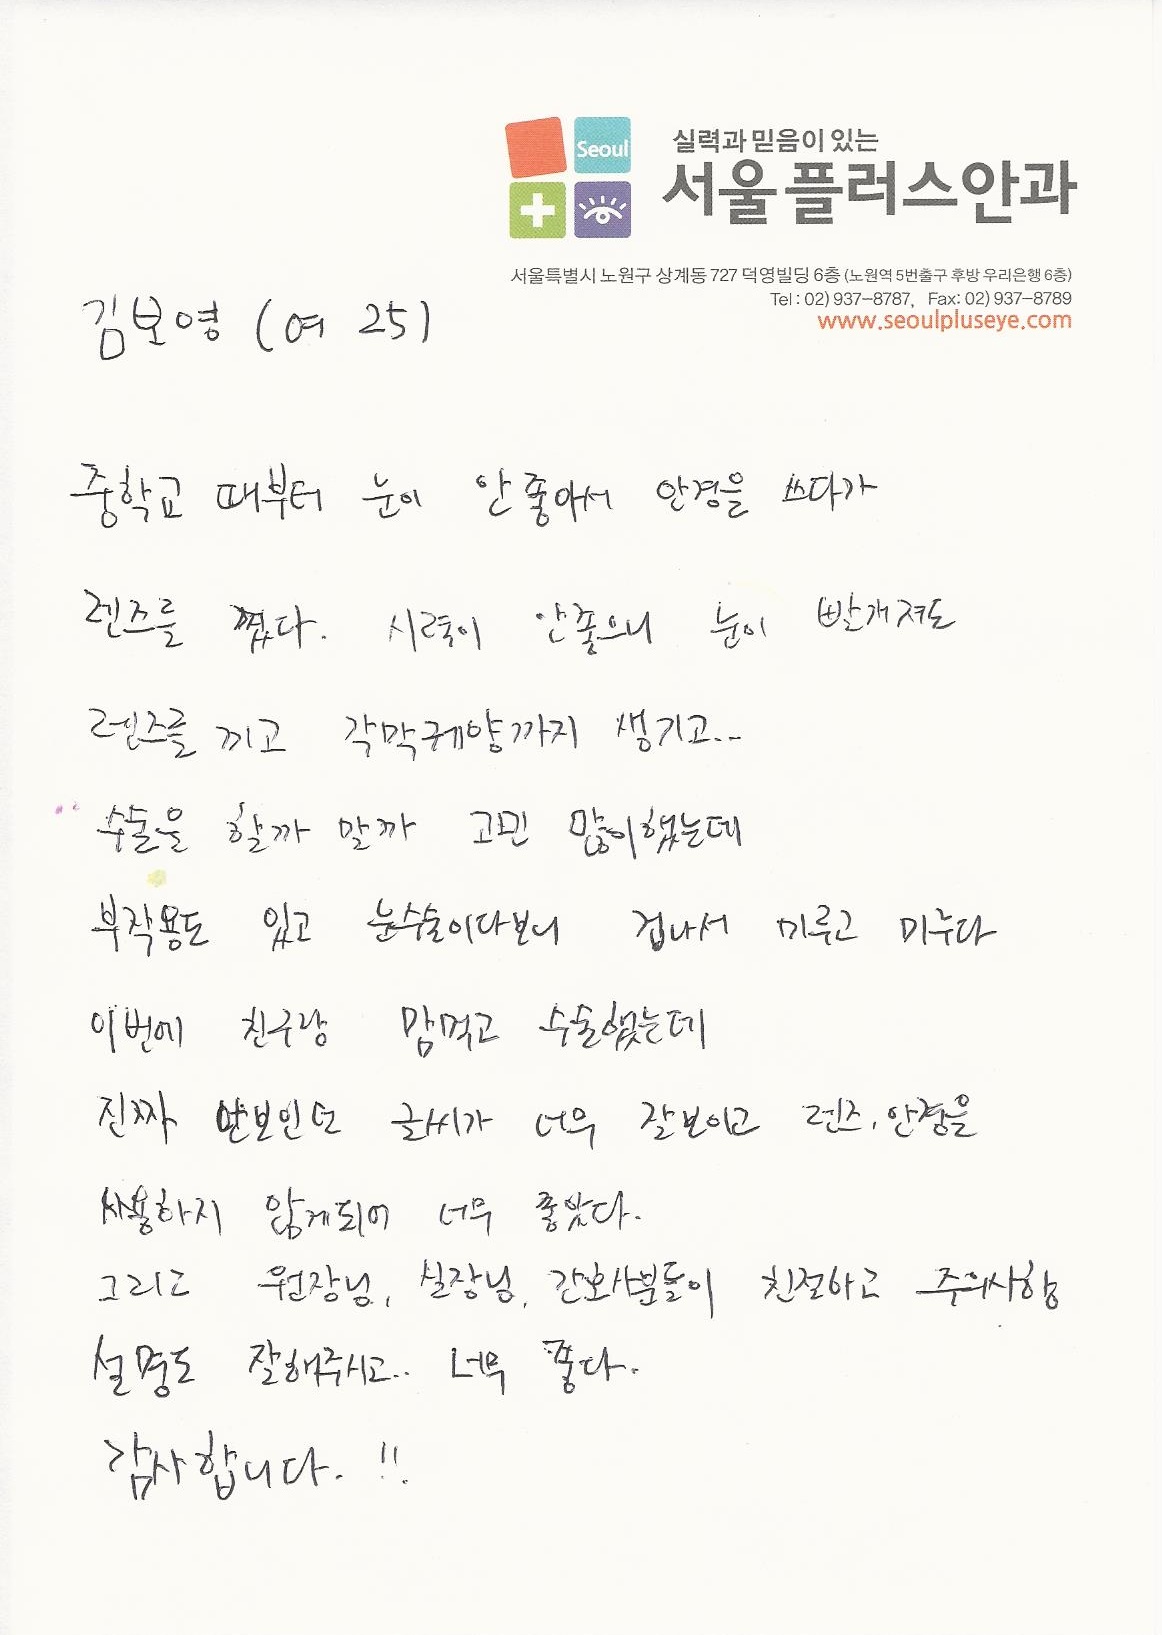 Seoul
실력과 믿음이 있는
서울플러스안과
서울특별시 노원구 상계동 727 덕영빌딩 6층 (노원역 5번출구 후방 우리은행 6층)
Tel : 02) 937-8787, Fax: 02) 937-8789
www.seoulpluseye.com
김보영 (여 25)
중학교 때부터 눈이 안좋아서 안경을 쓰다가
렌즈를 꼈다. 시력이 안좋으니 눈이 빨개져도
렌즈를 끼고 각막궤양까지 생기고...
수술을 할까 말까 고민 많이했는데
부작용도 있고 눈수술이다보니 겁나서 미루고 미루다
이번에 친구랑 맘먹고 수술했는데
진짜 안보인던 글씨가 너무 잘보이고 렌즈, 안경을
사용하지 않게되어 너무 좋았다.
그리고 원장님, 실장님, 간호사분들이 친절하고 주의사항
설명도 잘해주시고.. 너무 좋다.
감사합니다. !!